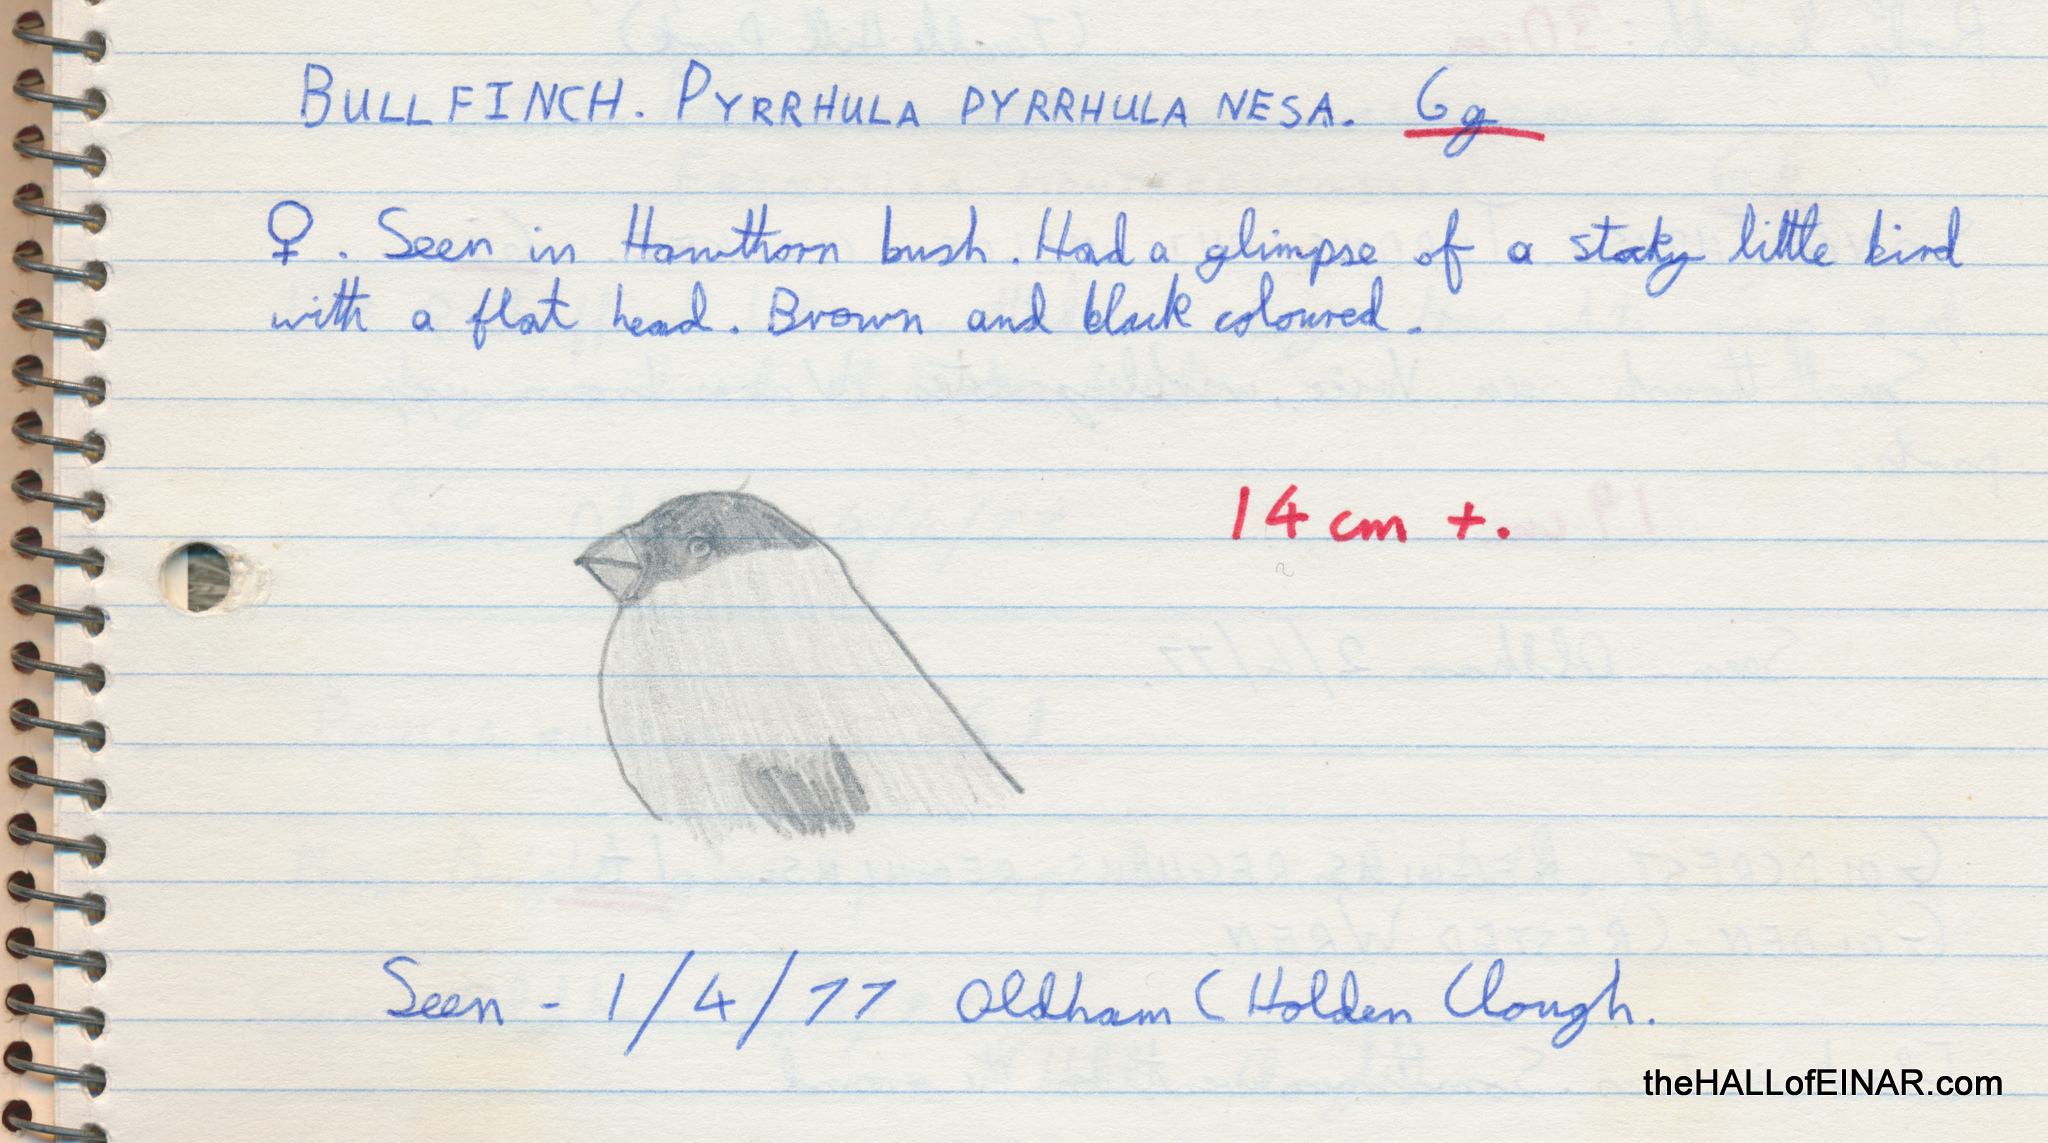 BULLFINCH. PYRRHULA PYRRHULA NESA. Gg
♀. Seen in Hawthorn bush. Had a glimpse of a stocky little bird
with a flat head. Brown and black coloured.
14 cm +.
Seen - 1/4/77 Oldham (Holden Clough.
theHALLofEINAR.com